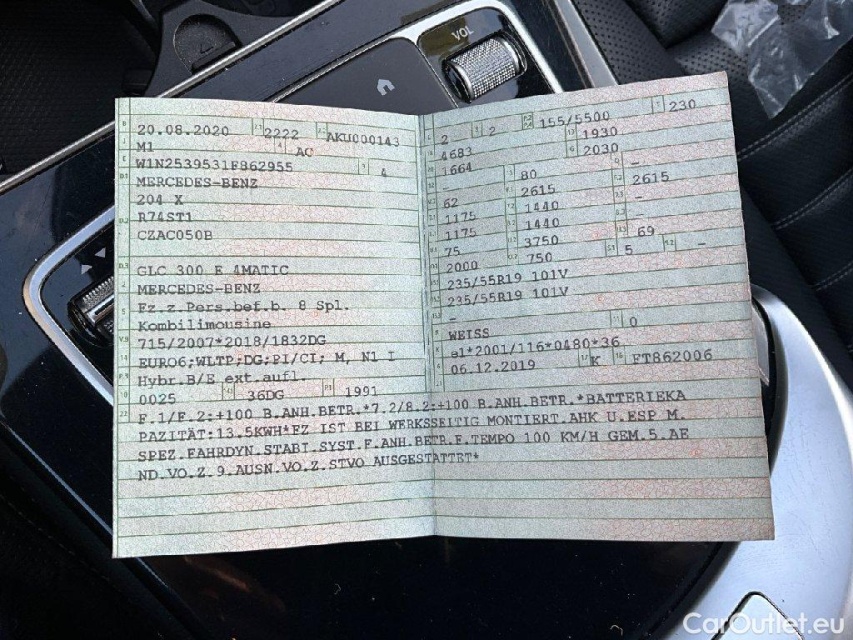 VOL
20.08.2020 2222 AKU000143
M1 AC
W1N2539531F862955 4
MERCEDES-BENZ
204 X
R74ST1
CZAC050B
GLC 300 E 4MATIC
MERCEDES-BENZ
Fz.z.Pers.bef.b. 8 Spl.
Kombilimousine
715/2007*2018/1832DG
EURO6;WLTP;DG;PI/CI; M, N1 I
Hybr.B/E ext.aufl.
0025 36DG 1991
2 2 155/5500 230
4683 1930
1664 2030 -
80
62 2615 2615
1175 1440 -
1175 1440 -
75 3750 69
2000 750 5 -
235/55R19 101V
235/55R19 101V
-
WEISS 0
e1*2001/116*0480*36
06.12.2019 K FT862006
F.1/F.2:+100 B.ANH.BETR.*7.2/8.2:+100 B.ANH.BETR.*BATTERIEKA
PAZITÄT:13.5KWH*FZ IST BEI WERKSSEITIG MONTIERT.AHK U.ESP M.
SPEZ.FAHRDYN.STABI.SYST.F.ANH.BETR.F.TEMPO 100 KM/H GEM.5.AE
ND.VO.Z.9.AUSN.VO.Z.STVO AUSGESTATTET*
CarOutlet.eu